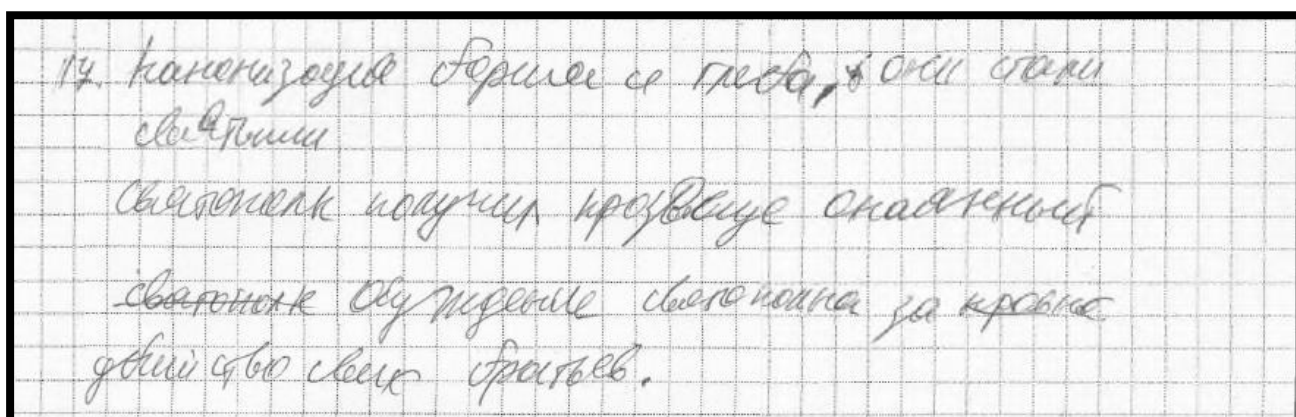 17. Канонизация Бориса и Глеба, они стали
святыми
Святополк получил прозвище окаянный
святополк Осуждение святополка за кровно
убийство своих братьев.